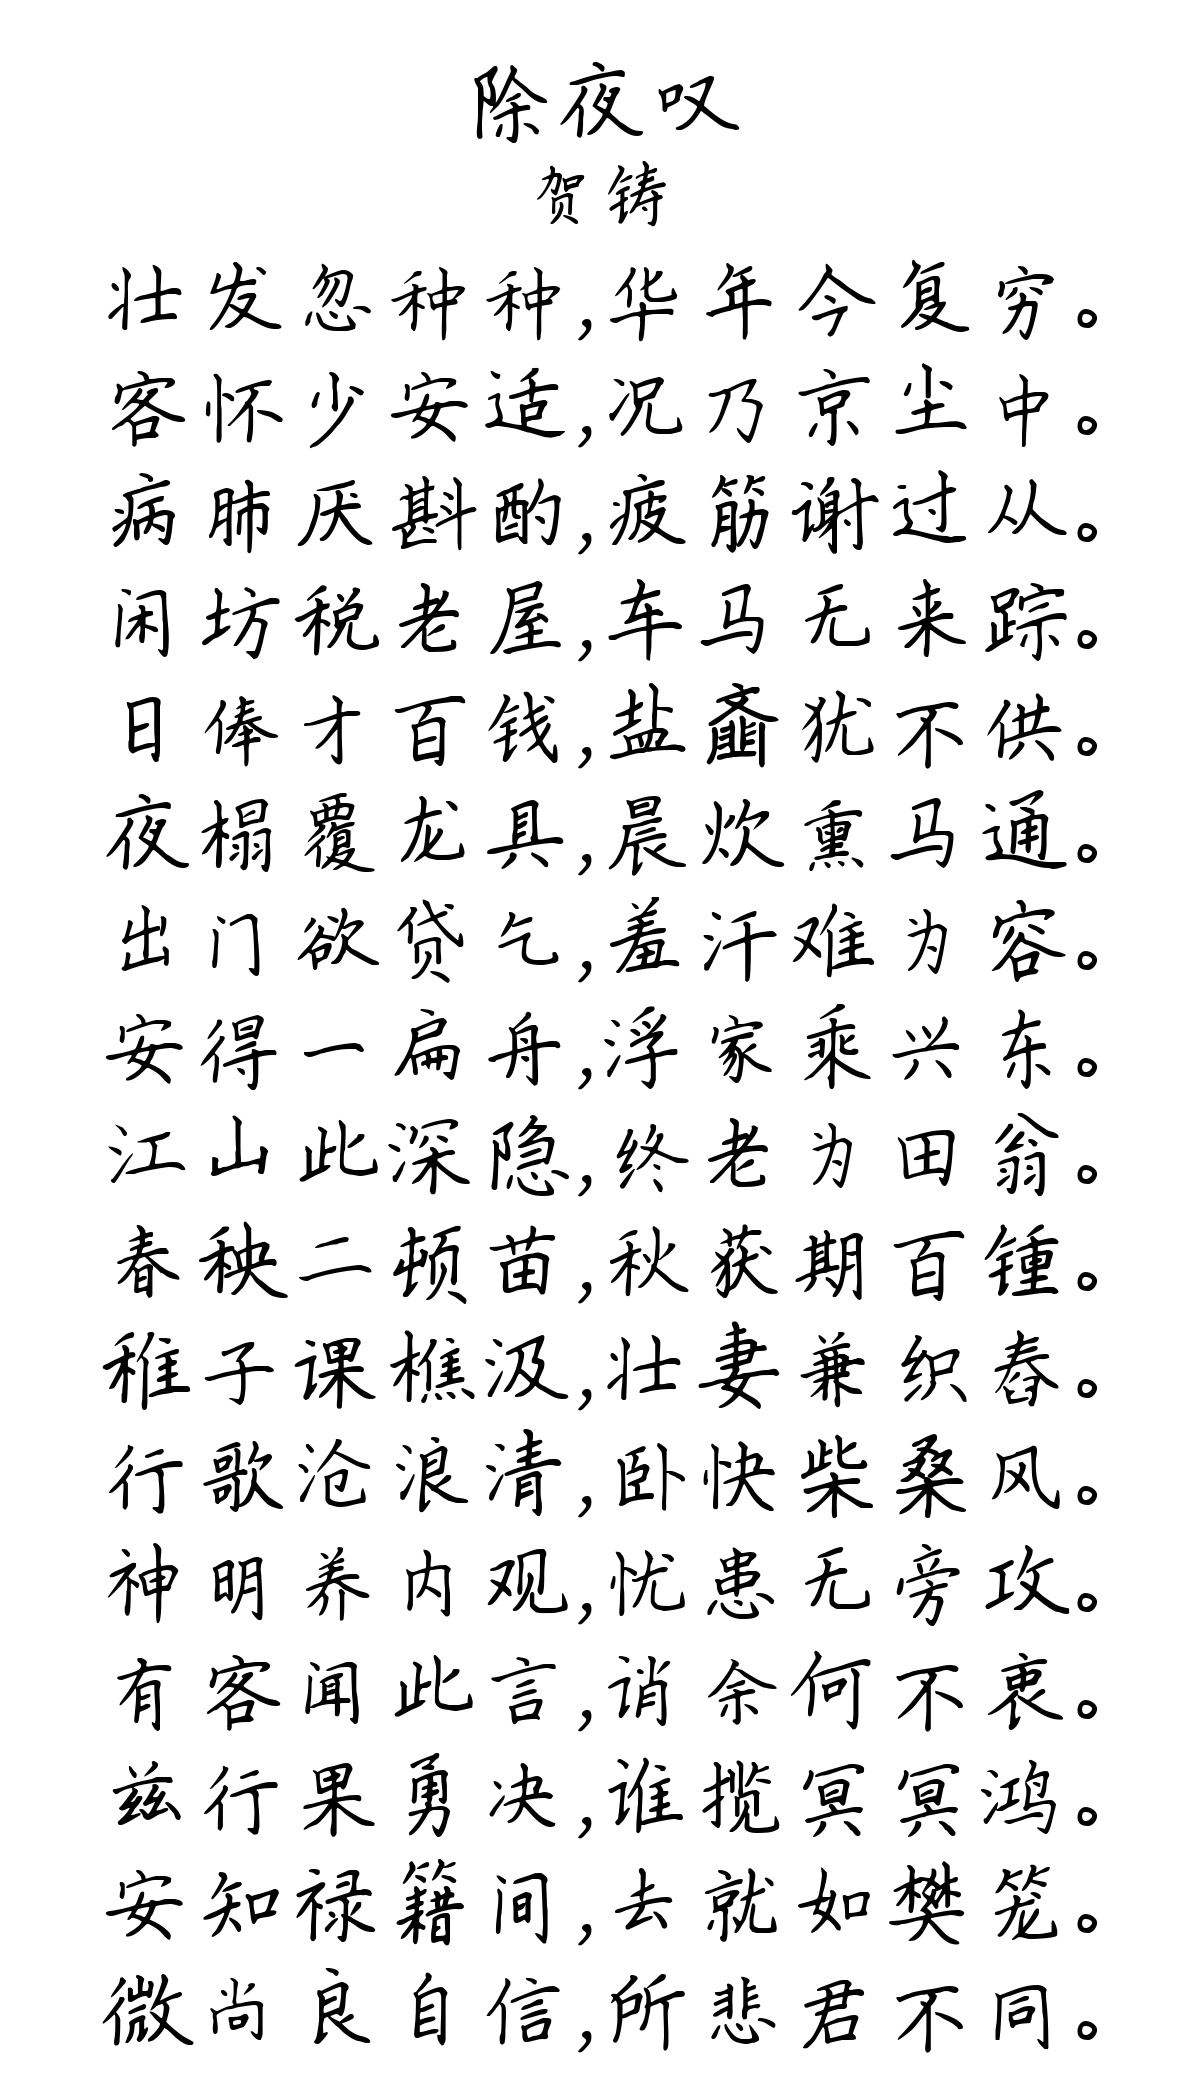 除夜叹
贺铸
壮发忽种种,华年今复穷。
客怀少安适,况乃京尘中。
病肺厌斟酌,疲筋谢过从。
闲坊税老屋,车马无来踪。
日俸才百钱,盐齑犹不供。
夜榻覆龙具,晨炊熏马通。
出门欲贷乞,羞汗难为容。
安得一扁舟,浮家乘兴东。
江山此深隐,终老为田翁。
春秧二顿苗,秋获期百锺。
稚子课樵汲,壮妻兼织舂。
行歌沧浪清,卧快柴桑风。
神明养内观,忧患无旁攻。
有客闻此言,诮余何不衷。
兹行果勇决,谁揽冥冥鸿。
安知禄籍间,去就如樊笼。
微尚良自信,所悲君不同。